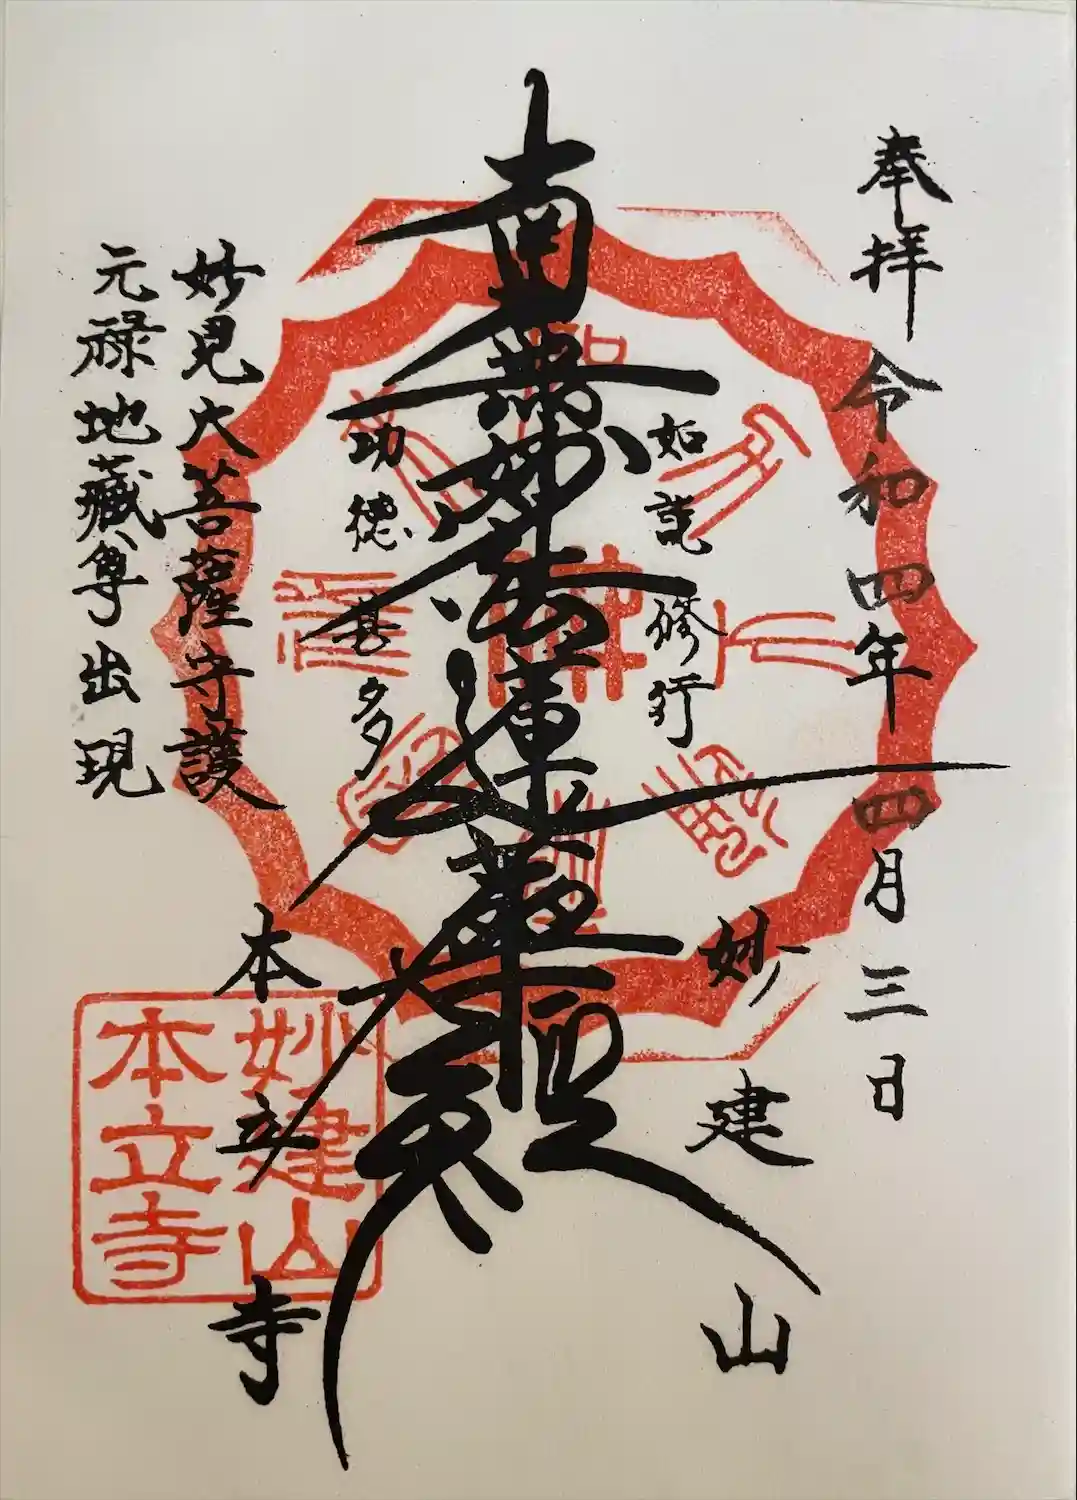 奉拝 令和四年四月三日
如説修行
南無妙法蓮華経
功徳甚多
妙建山
本立寺
妙見大菩薩守護
元禄地蔵尊出現
妙建山
本立寺